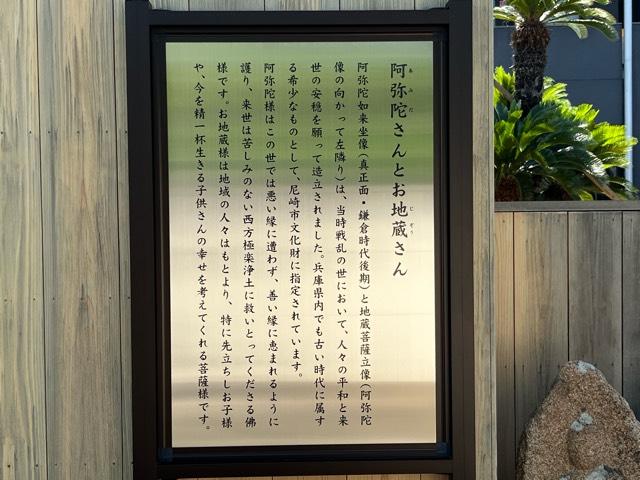 阿弥陀さんとお地蔵さん
阿弥陀如来坐像(真正面・鎌倉時代後期)と地蔵菩薩立像(阿弥陀
像の向かって左隣り)は、当時戦乱の世において、人々の平和と来
世の安穏を願って造立されました。兵庫県内でも古い時代に属す
る希少なものとして、尼崎市文化財に指定されています。
阿弥陀様はこの世では悪い縁に遭わず、善い縁に恵まれるように
護り、来世は苦しみのない西方極楽浄土に救いとってくださる佛
様です。お地蔵様は地域の人々はもとより、特に先立ちしお子様
や、今を精一杯生きる子供さんの幸せを考えてくれる菩薩様です。